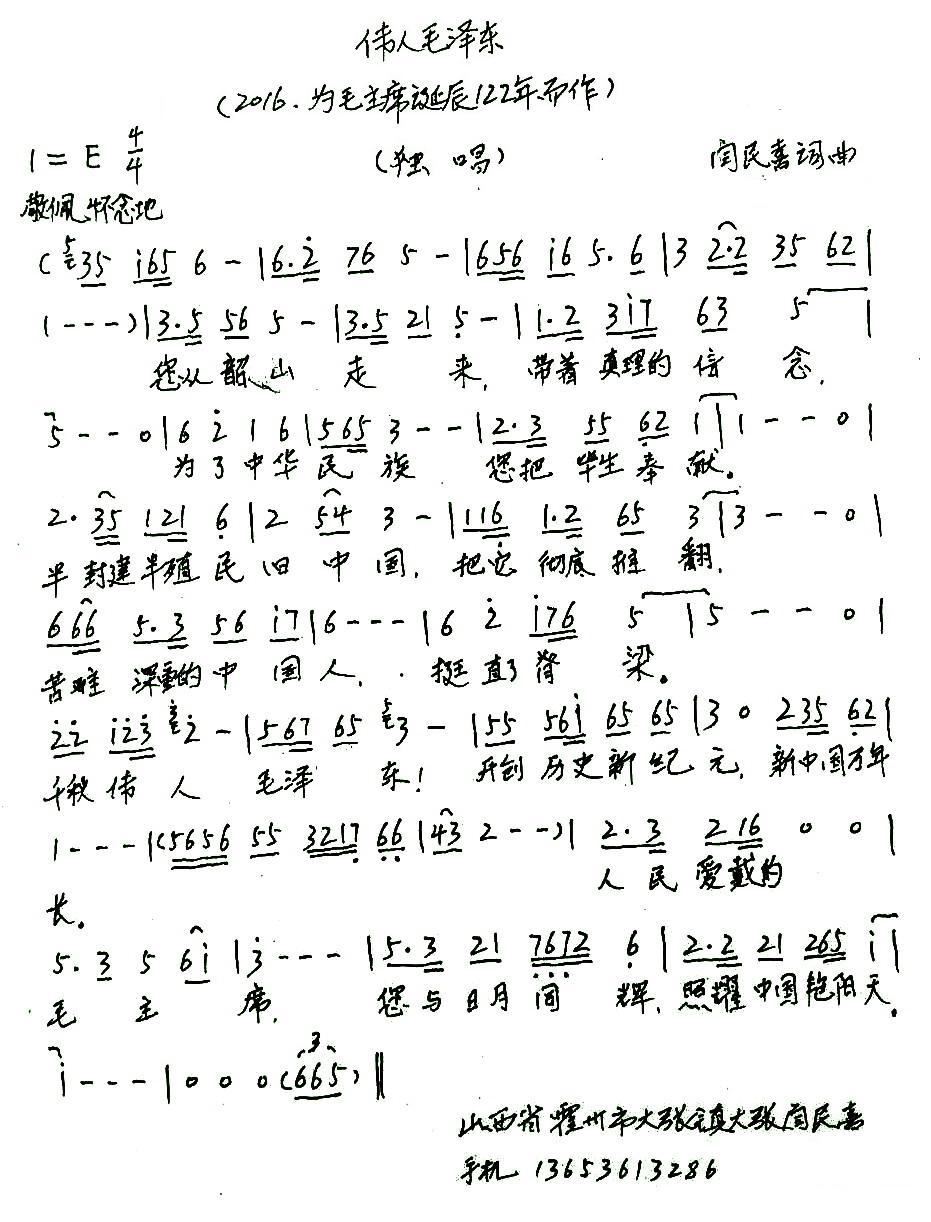 伟人毛泽东
(2016.为毛主席诞辰122年而作)
1=E 4/4 (独唱) 闫民喜词曲
敬佩怀念地
(5 35 i65 6 - |6.2 76 5 - |656 i6 5.6 |3 2.2 35 62|
1---)|3.5 56 5 - |3.5 21 5 - |1.2 3i7 63 5 |
您从韶山走来,带着真理的信念,
5 - - 0|6 2 1 6|565 3 - - |2.3 55 62 1|1 - - 0|
为了中华民族 您把毕生奉献。
2. 35 121 6|2 54 3 - |116 1.2 65 3|3 - - 0|
半封建半殖民旧中国,把它彻底推翻,
666 5.3 56 i7|6--- |6 2 i76 5 |5 - - 0|
苦难深重的中国人,挺直了脊梁。
22 i23 2 2 - |567 65 5 3 - |55 56i 65 65|3 0 235 62|
千秋伟人毛泽东!开创历史新纪元,新中国万年
1---|(5656 55 3217 66|43 2--)| 2.3 216 0 0|
人民爱戴的
长。
5. 3 5 6i |3--- |5.3 21 7672 6|2.2 21 265 i|
毛主席,您与日月同辉,照耀中国艳阳天。
i---|0 0 0(665)‖
3
山西省霍州市大张镇大张闫民喜
手机 13653613286